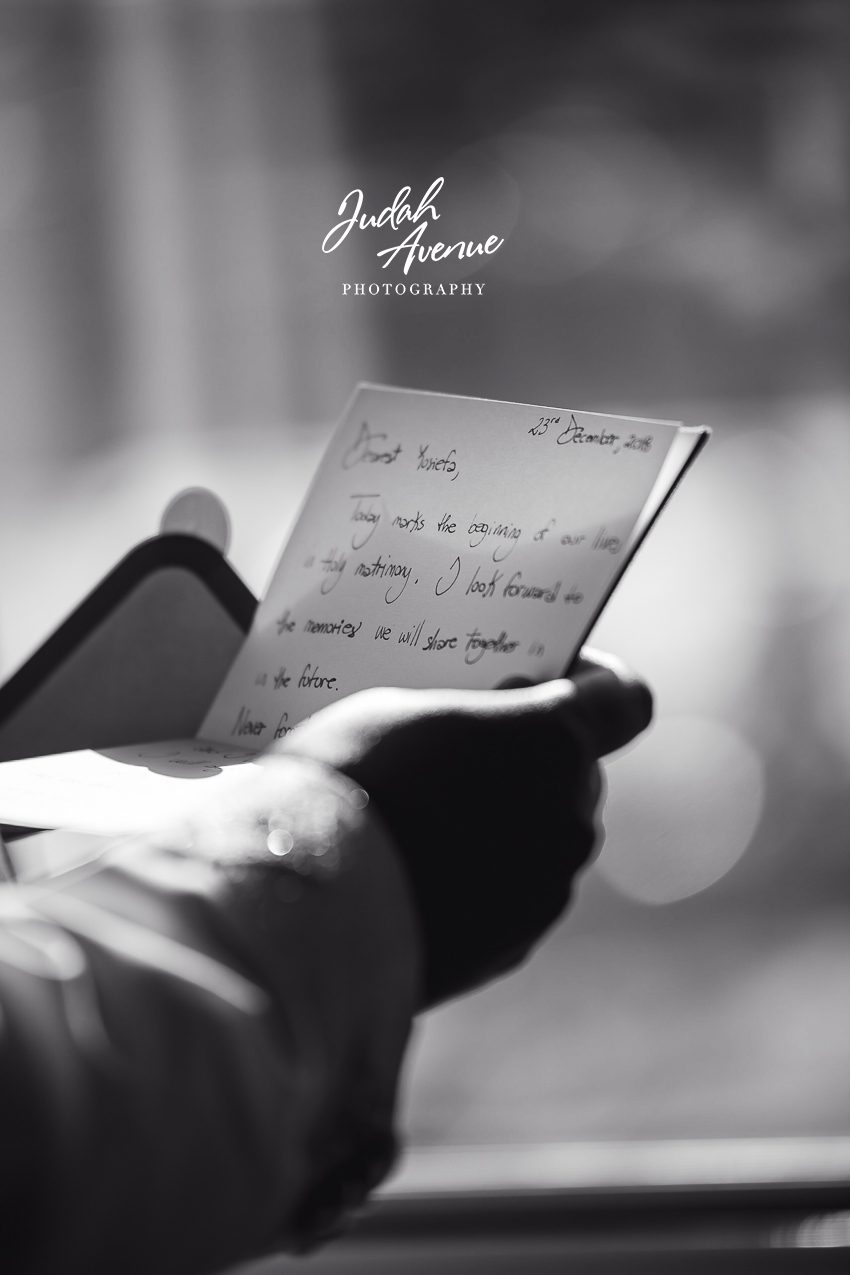 Judah
Avenue
PHOTOGRAPHY
23rd December, 2018
Dearest
Today marks the beginning of our lives
in Holy matrimony. I look forward to
the memories we will share together in
in the future.
Never